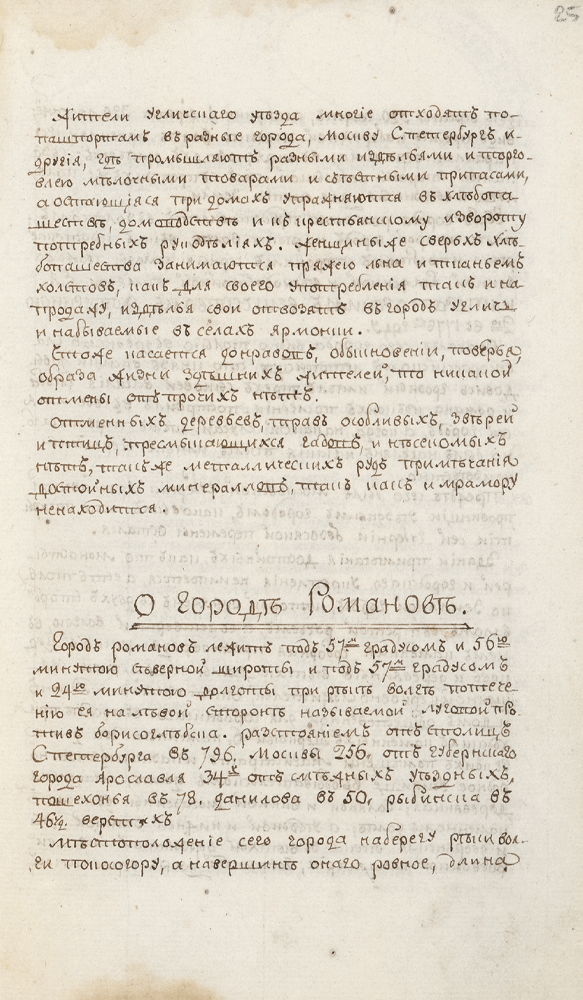 25
Жители угличскаго уѣзда многіе отходятъ по-
пашпортамъ въ разные города, москву С:петербургъ и-
другія, гдѣ промышляютъ разными издѣльями и торго-
влею мѣлочными товарами и съѣстными припасами,
а остающіяся при домахъ упражняются въ хлѣбопа-
шествѣ, домоводствѣ и въ крестьянскому извороту
потребныхъ рукодѣліяхъ. женщины же сверьхъ хлѣ-
бопашества занимаются пряжею льна и тканьемъ
холстовъ, какъ для своего употребленія такъ и на-
продажу, издѣлья свои отвозятъ въ городъ угличь
и набываемые въ селахъ ярмонки.
Чтоже касается до нравовъ, обыкновеніи, повѣрья,
образа жизни здѣшнихъ жителей, то никакой
отмены отъ прочихъ нѣтъ.
Отменныхъ деревьевъ, травъ особливыхъ, звѣрей
и птицъ, пресмыкающихся гадовъ, и насекомыхъ
нѣтъ, такъ же металлическихъ рудъ примѣчанія
достойныхъ минералловъ, такъ какъ и мрамору
ненаходится.
О городѣ Романовѣ.
Городъ романовъ лежитъ подъ 57мъ градусомъ и 56ю
минутою сѣверной широты и подъ 57мъ градусомъ
и 24ю минутою долготы при рѣкѣ волгѣ по тече-
нію ея на лѣвой сторонѣ называемой луговой про-
тивъ борисоглѣбска. разстояніемъ отъ столицъ
С:петербурга въ 796. Москвы 256. отъ губернскаго
города ярославля 34х отъ смѣжныхъ уѣздныхъ,
пошехонья въ 78. данилова въ 50, рыбинска въ
46½ верстахъ
Мѣстоположеніе сего города на берегу рѣки вол-
ги покосогору, а навершинѣ онаго ровное, длина